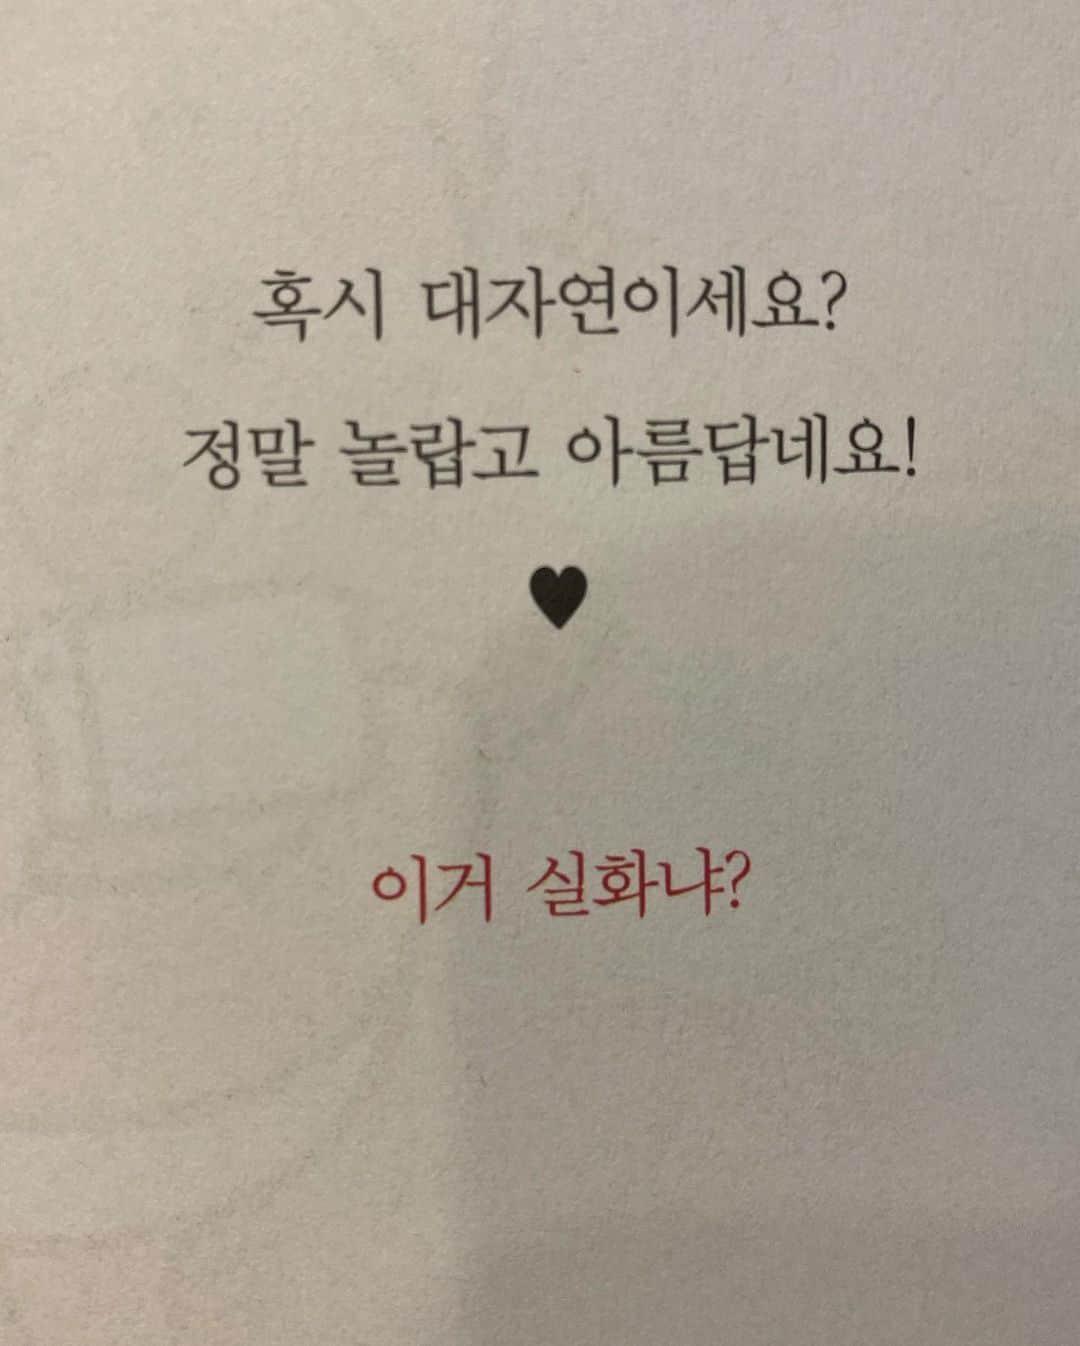 혹시 대자연이세요?
정말 놀랍고 아름답네요!
♥
이거 실화냐?